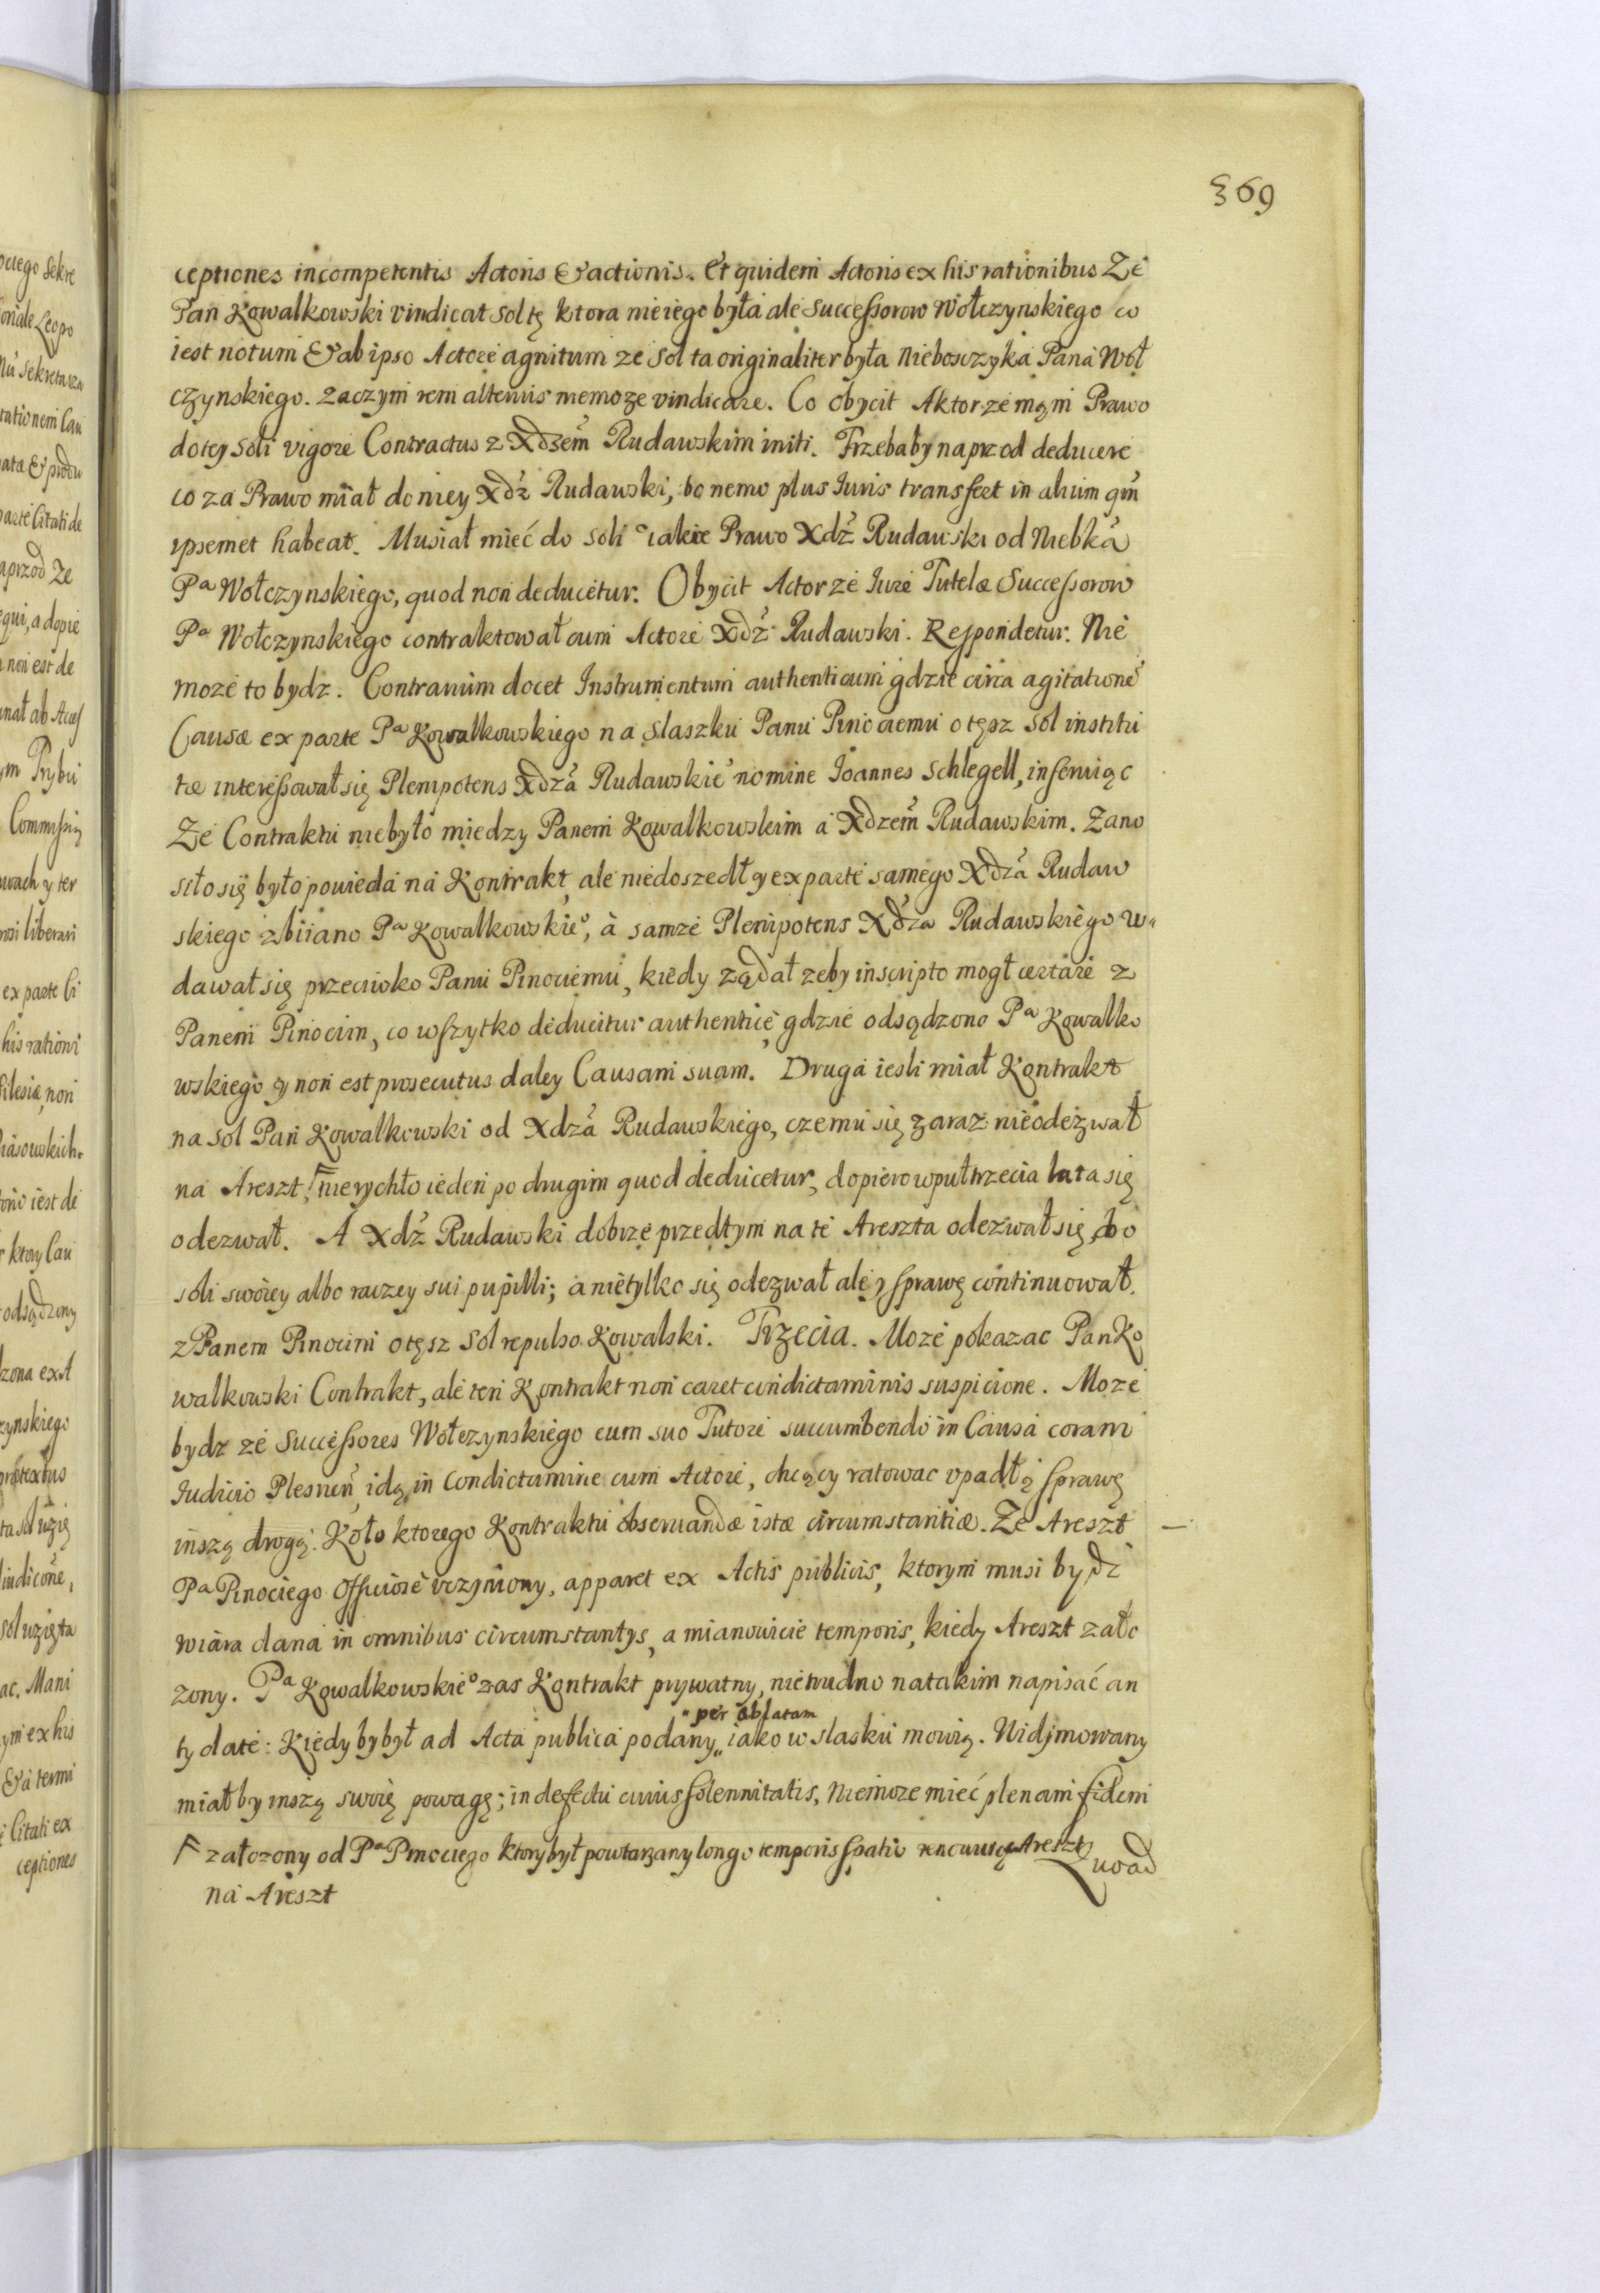 369
ceptiones incompetentis Actoris & actionis. Et quidem Actoris ex his rationibus Ze
Pan Kowalkowski vindicat sol tę ktora nie iego była ale Successorow Wołczynskiego co
iest notum & ab ipso Actore agnitum ze sol ta originaliter była Nieboszczyka Pana Woł
czynskiego. Zaczym rem alterius niemoze vindicare. Co obycit Aktor ze mąm Prawo
do tey soli vigore Contractus z Xdzem Rudawskim initi. Trzebaby naprzod deducere
co za Prawo miał do niey Xdz Rudawski, bo nemo plus Iuris transfert in alium qm
ipsemet habeat. Musiał mieć do soli iakie Prawo Xdz Rudawski od Niebka
Pa Wołczynskiego, quod non deducetur. Obycit Actor ze Iure Tutelæ Successorow
Pa Wołczynskiego contraktował cum Actore Xdz Rudawski. Respondetur. Nie
moze to bydz. Contrarium docet Instrumentum authenticum gdzie circa agitatione
Causæ ex parte Pa Kowalkowskiego na slaszku Panu Pinociemu o tęsz sol institu
tæ interessował się Plenipotens Xdza Rudawskie nomine Ioannes Schlegell, inferuiąc
Ze Contraktu niebyło miedzy Panem Kowalkowskim a Xdzem Rudawskim. Zano
siło się było powieda na Kontrakt, ale niedoszedł y ex parte samego Xdza Rudaw
skiego zbiiano Pa Kowalkowskieo, à samze Plenipotens Xdza Rudawskiego w
dawał się przeciwko Panu Pinociemu, kiedy ządał zeby inscripto mogł certare z
Panem Pinocim, co wszytko deducitur authentice, gdzie odsądzono Pa Kowalko
wskiego y non est prosecutus daley Causam suam. Druga iesli miał Kontrakt
na sol Pan Kowalkowski od Xdza Rudawskiego, czemu się zaraz nieodezwał
na Areszt nierychło ieden po drugim quod deducetur, dopiero wpułtrzecia lata się
odezwał. A Xdz Rudawski dobrze przedtym na te Areszta odezwał się, do
soli swoiey albo raczey sui pupilli; a nietylko się odezwał ale y sprawę continuował
z Panem Pinocim o tęsz sol repulso Kowalski. Trzecia. Moze pokazac Pan Ko
walkowski Contrakt, ale ten Kontrakt non caret condictaminis suspicione. Moze
bydz ze Successores Wołczynskiego cum suo Tutore succumbendo in Causa coram
Iudicio Plesnen, idą in Condictamine cum Actore, chcący ratowac vpadłą sprawę
inszą drogą. Koło ktorego Kontraktu obseruandæ istæ circumstantiæ. Ze Areszt
Pa Pinociego Officiose vczyniony, apparet ex Actis publicis, ktorym musi bydz
wiara dana in omnibus circumstantys, a mianowicie temporis, kiedy Areszt zało
zony. Pa Kowalkowskieo zas Kontrakt prywatny, nietrudno natakim napisać an
ty date: Kiedyby był ad Acta publica podany „per oblatam„ iako w slasku mowią. Widymowany
miałby inszą swoię powagę; in defectu cuius solennitatis, niemoze mieć plenam fidem
załozony od Pa Pinociego ktory był powtarzany longo temporis spatio Areszt
na Areszt
Quod